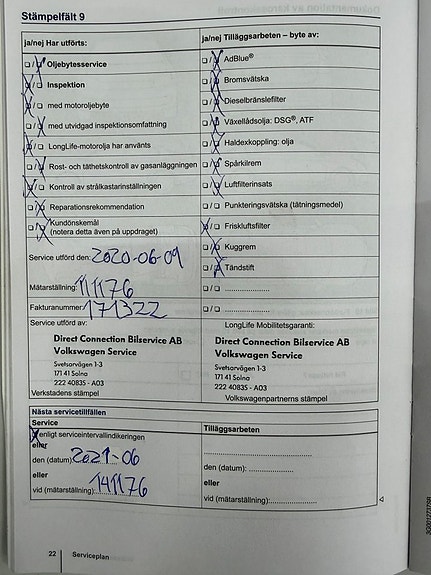 Stämpelfält 9
ja/nej Har utförts:
ja/nej Tilläggsarbeten – byte av:
Oljebytesservice
AdBlue®
Inspektion
Bromsvätska
med motoroljebyte
Dieselbränslefilter
med utvidgad inspektionsomfattning
Växellådsolja: DSG®, ATF
LongLife-motorolja har använts
Haldexkoppling: olja
Rost- och täthetskontroll av gasanläggningen
Spårkilrem
Kontroll av strålkastarinställningen
Luftfilterinsats
Reparationsrekommendation
Punkteringsvätska (tätningsmedel)
Kundönskemål
(notera detta även på uppdraget)
Friskluftsfilter
Kuggrem
Service utförd den: 2020-06-09
Tändstift
Mätarställning: 111176
Fakturanummer: 171322
Service utförd av:
LongLife Mobilitetsgaranti:
Direct Connection Bilservice AB
Volkswagen Service
Svetsarvägen 1-3
171 41 Solna
222 40835 - A03
Verkstadens stämpel
Direct Connection Bilservice AB
Volkswagen Service
Svetsarvägen 1-3
171 41 Solna
222 40835 - A03
Volkswagenpartnerns stämpel
Nästa servicetillfällen
Service
Tilläggsarbeten
enligt serviceintervallindikeringen
eller
den (datum): 2021-06
den (datum):
eller
eller
vid (mätarställning): 141176
vid (mätarställning):
22 Serviceplan